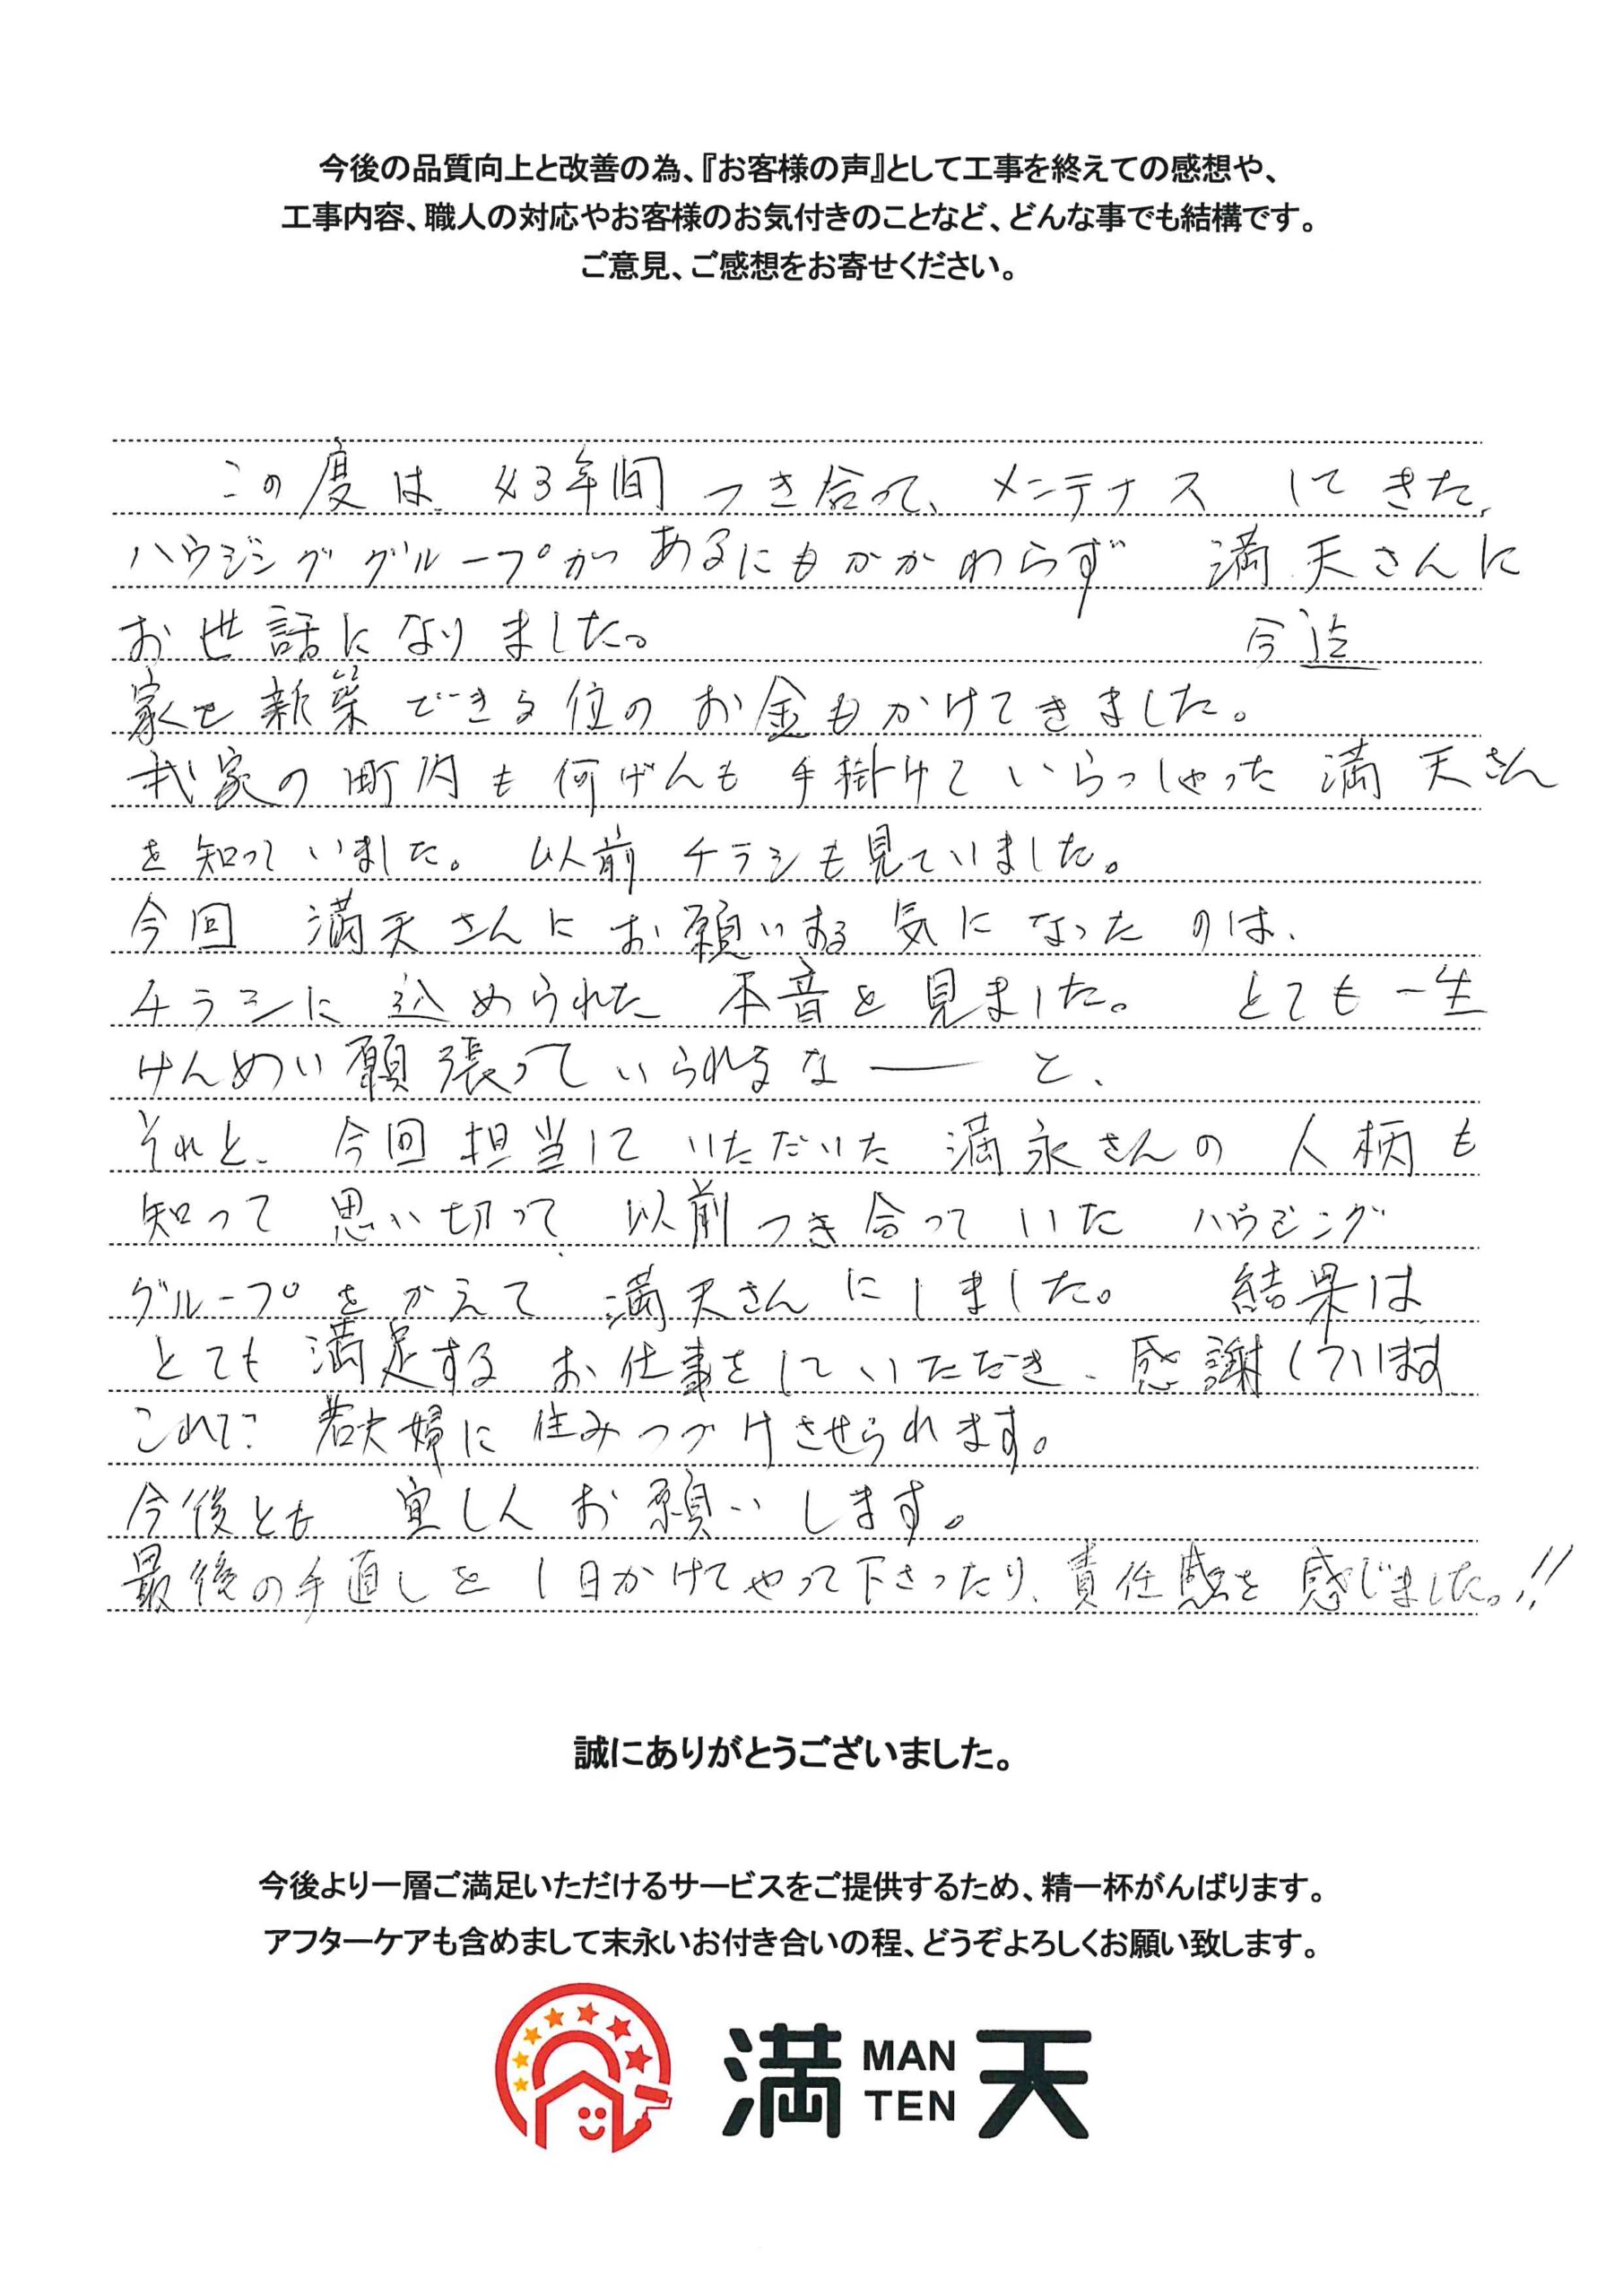 今後の品質向上と改善の為、『お客様の声』として工事を終えての感想や、
工事内容、職人の対応やお客様のお気付きのことなど、どんな事でも結構です。
ご意見、ご感想をお寄せください。
この度は、43年間つき合って、メンテナス してきた、
ハウジンググループがあるにもかかわらず 満天さんに
お世話になりました。 今迄
家を新築できる位のお金もかけてきました。
我家の町内も何げんも手掛けていらっしゃった満天さん
を知っていました。以前チラシも見ていました。
今回 満天さんにお願いする気になったのは、
チラシに込められた本音を見ました。とても一生
けんめい願張っていられるなーと、
それと、今回担当していただいた満永さんの人柄も
知って思い切って、以前つき合っていたハウジング
グループをかえて満天さんにしました。結果は
とても満足するお仕事をしていただき、感謝しています
これで 若夫婦に住みつづけさせられます。
今後とも 宜しくお願いします。
最後の手直しを1日かけてやって下さったり、責任感を感じました。!!
誠にありがとうございました。
今後より一層ご満足いただけるサービスをご提供するため、精一杯がんばります。
アフターケアも含めまして末永いお付き合いの程、どうぞよろしくお願い致します。
満 MAN TEN 天